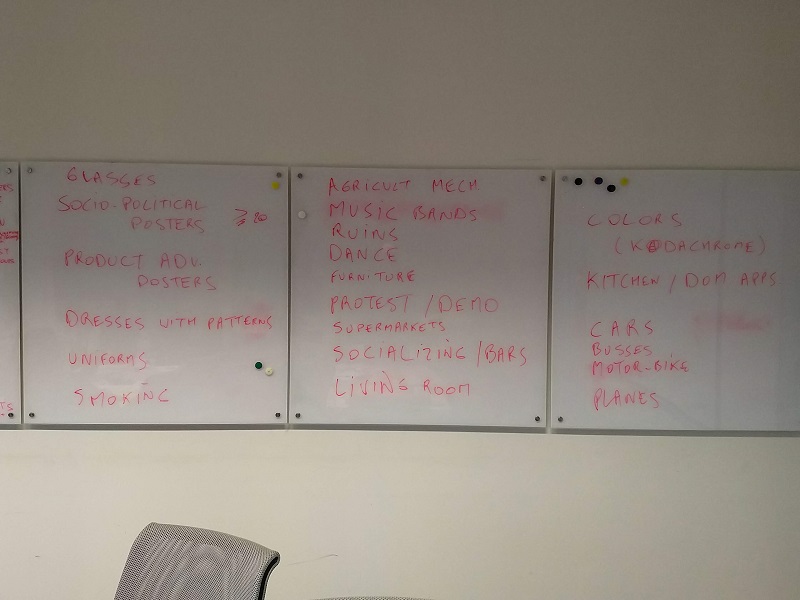 GLASSES
SOCIO-POLITICAL
POSTERS ≥ 20
PRODUCT ADV.
POSTERS
DRESSES WITH PATTERNS
UNIFORMS
SMOKING
AGRICULT MECH.
MUSIC BANDS
RUINS
DANCE
FURNITURE
PROTEST / DEMO
SUPERMARKETS
SOCIALIZING / BARS
LIVING ROOM
COLORS
(KODACHROME)
KITCHEN / DOM APPS
CARS
BUSSES
MOTOR-BIKE
PLANES